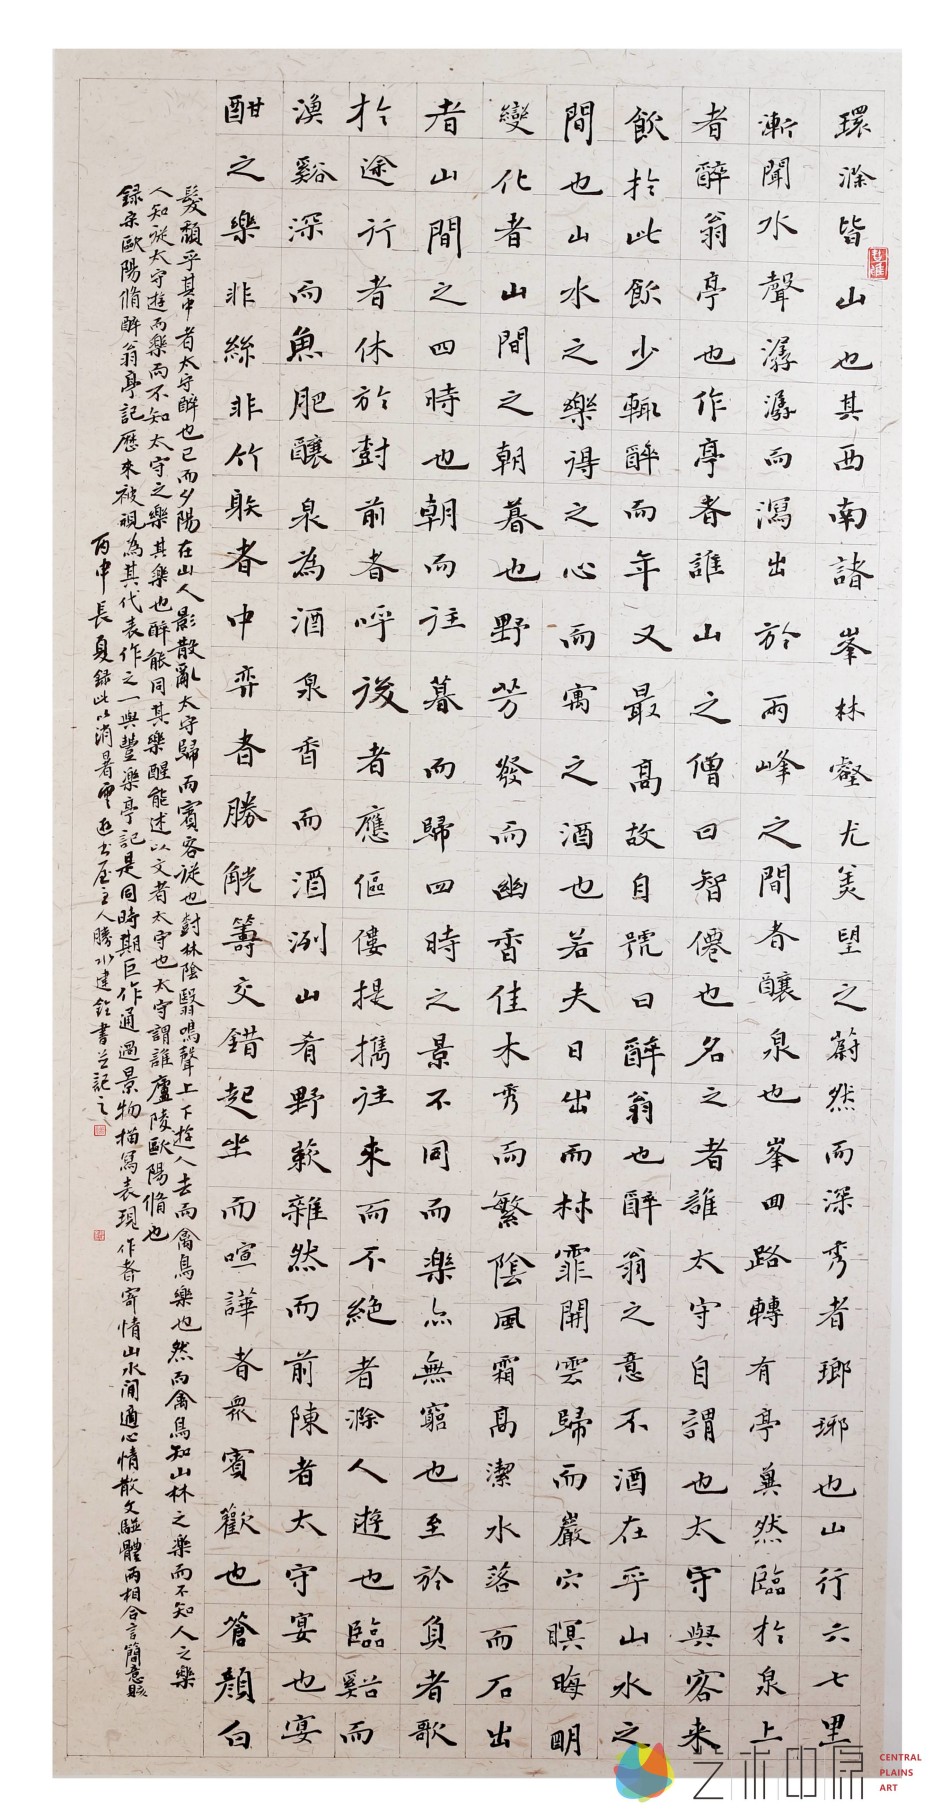 環滁皆山也其西南諸峯林壑尤美望之蔚然而深秀者瑯琊也山行六七里
漸聞水聲潺潺而瀉出於兩峰之間者釀泉也峯回路轉有亭翼然臨於泉上
者醉翁亭也作亭者誰山之僧曰智僊也名之者誰太守自謂也太守與客来
飲於此飲少輒醉而年又最高故自號曰醉翁也醉翁之意不酒在乎山水之
間也山水之樂得之心而寓之酒也若夫日出而林霏開雲歸而巖穴暝晦明
變化者山間之朝暮也野芳發而幽香佳木秀而繁陰風霜高潔水落而石出
者山間之四時也朝而往暮而歸四時之景不同而樂亦無窮也至於負者歌
於途行者休於樹前者呼後者應傴僂提攜往来而不絶者滁人遊也臨谿而
漁谿深而魚肥釀泉為酒泉香而酒洌山肴野蔌雜然而前陳者太守宴也宴
酣之樂非絲非竹躲者中弈者勝觥籌交錯起坐而喧譁者衆賓歡也蒼顔白
髮頹乎其中者太守醉也已而夕陽在山人影散亂太守歸而賓客從也樹林陰翳鳴聲上下遊人去而禽鳥樂也然而禽鳥知山林之樂而不知人之樂
人知從太守遊而樂而不知太守之樂其樂也醉能同其樂醒能述以文者太守也太守謂誰廬陵歐陽脩也
録宋歐陽脩醉翁亭記歷来被視為其代表作之一與豐樂亭記是同時期巨作通過景物描寫表現作者寄情山水間適心情散文駢體両相合言簡意賅
丙申長夏録此以消暑雲逰书屋主人勝水建銓書並記之
艺术中原
CENTRAL
PLAINS
ART